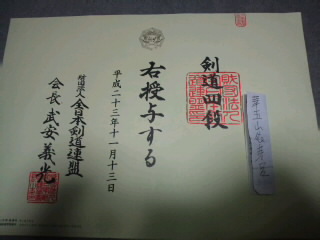 剣道四段
右授与する
平成二十三年十一月十三日
財団法人全日本剣道連盟
会長武安義光